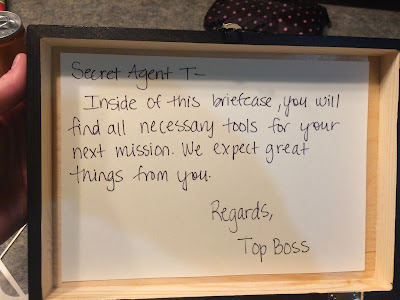 Secret Agent T-
Inside of this briefcase, you will
find all necessary tools for your
next mission. We expect great
things from you.
Regards,
Top Boss